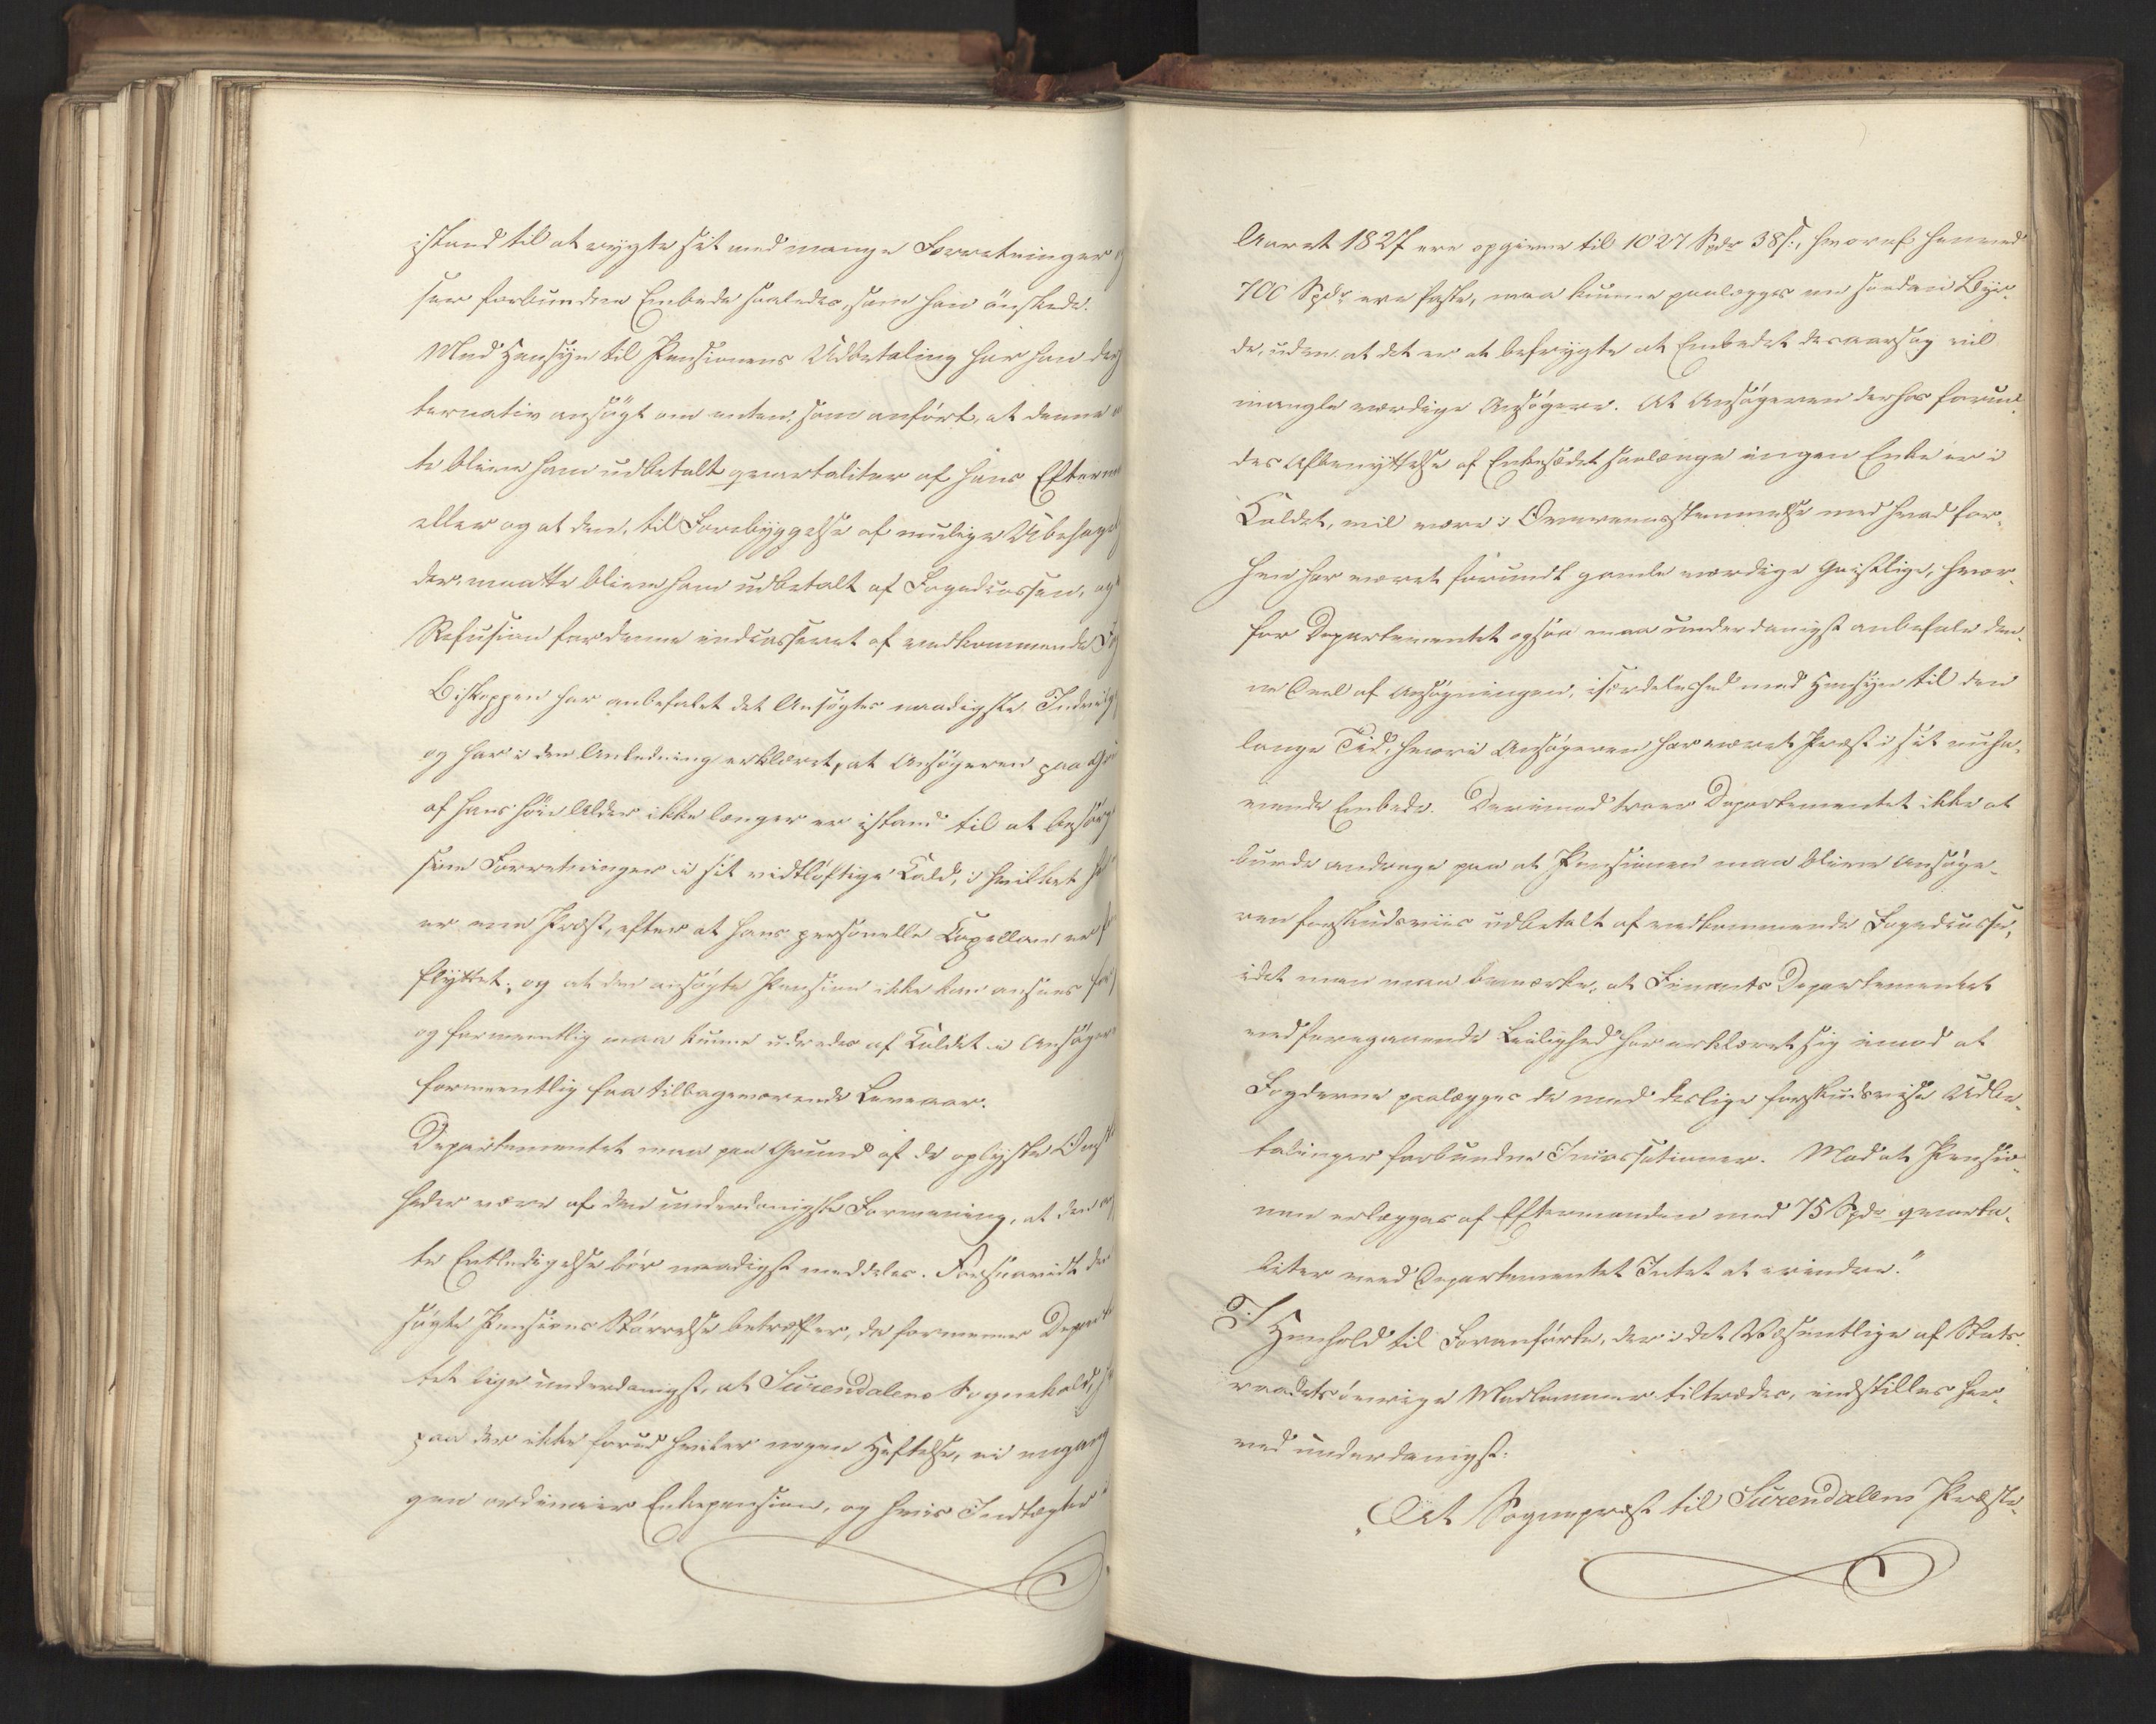 istand til at røgte sit med mange Forretninger
ser forbundne Embede saaledes, som han ønskede.
Med Hensyn til Pensionens Udbetaling har han der
ternativ ansøgt om enten, som anført, at denne
te blive ham udbetalt qvartaliter af hans Efterm
eller og at den, til Forebyggelse af mulige Ubehage
der, maatte blive ham udbetalt af Fogedcassen, og
Refusion for denne indcasseret af vedkommende
Biskoppen har anbefalet det Ansøgtes naadigste Indvil
og har i den Anledning erklæret, at Ansøgeren paa Gr
af hans høie Alder ikke længer er istand til at besørg
sine Forretninger i sit vidtløftige Kald, i hvilket
er ene Præst, efter at hans personelle Capellan er
flyttet; og at den ansøgte Pension ikke kan ansees for
og formeentlig maa kunne udredes af Kaldet i Ansøger
formeentlig faa tilbageværende Leveaar.
Departementet maa paa Grund af de oplyste Omst
heder være af den underdanigste Formening, at den
te Entledigelse bør naadigst meddeles. Forsaavidt den
søgte Pensions Størrelse betræffer, da formener Departe
tet lige underdanigst, at Surendalens Sognekald,
paa der ikke forud hviler nogen Heftelse, ei engang
gen ordinair Enkepension, og hvis Indtægter
Aaret 1827 ere opgivne til 1027 Spdr 38 s:, hvoraf henved
700 Spdr ere faste, maa kunne paalægges en saadan Byr-
de, uden at det er at befrygte at Embedet desaarsag vil
mangle værdige Ansøgere. At Ansøgeren derhos forun-
des Afbenyttelse af Enkesædet saalænge ingen Enke er i
Kaldet, vil være i Overeensstemmelse med hvad for-
hen har været forundt gamle værdige Geistlige, hvor-
for Departementet ogsaa maa underdanigst anbefale den-
ne Deel af Ansøgningen, isærdeleshed med Hensyn til den
lange Tid, hvori Ansøgeren har været Præst i sit nuha-
vende Embede. Derimod troer Departementet ikke at
burde andrage paa at Pensionen maa blive Ansøge-
ren forskudsviis udbetalt af vedkommende Fogedcasse,
idet man maa bemærke, at Finants Departementet
ved foregaaende Leilighed har erklæret sig imod at
Fogderne paalægges de med deslige forskudsvise Udbe-
talinger forbundne Incassationer. Mod at Pensio-
nen erlægges af Eftermanden med 75 Spdr qvarta-
liter veed Departementet Intet at erindre."
I Henhold til Foranførte, der i det Væsentlige af Stats-
raadets øvrige Medlemmer tiltrædes, indstilles her-
ved underdanigst:
"At Sognepræst til Surendalens Præste-